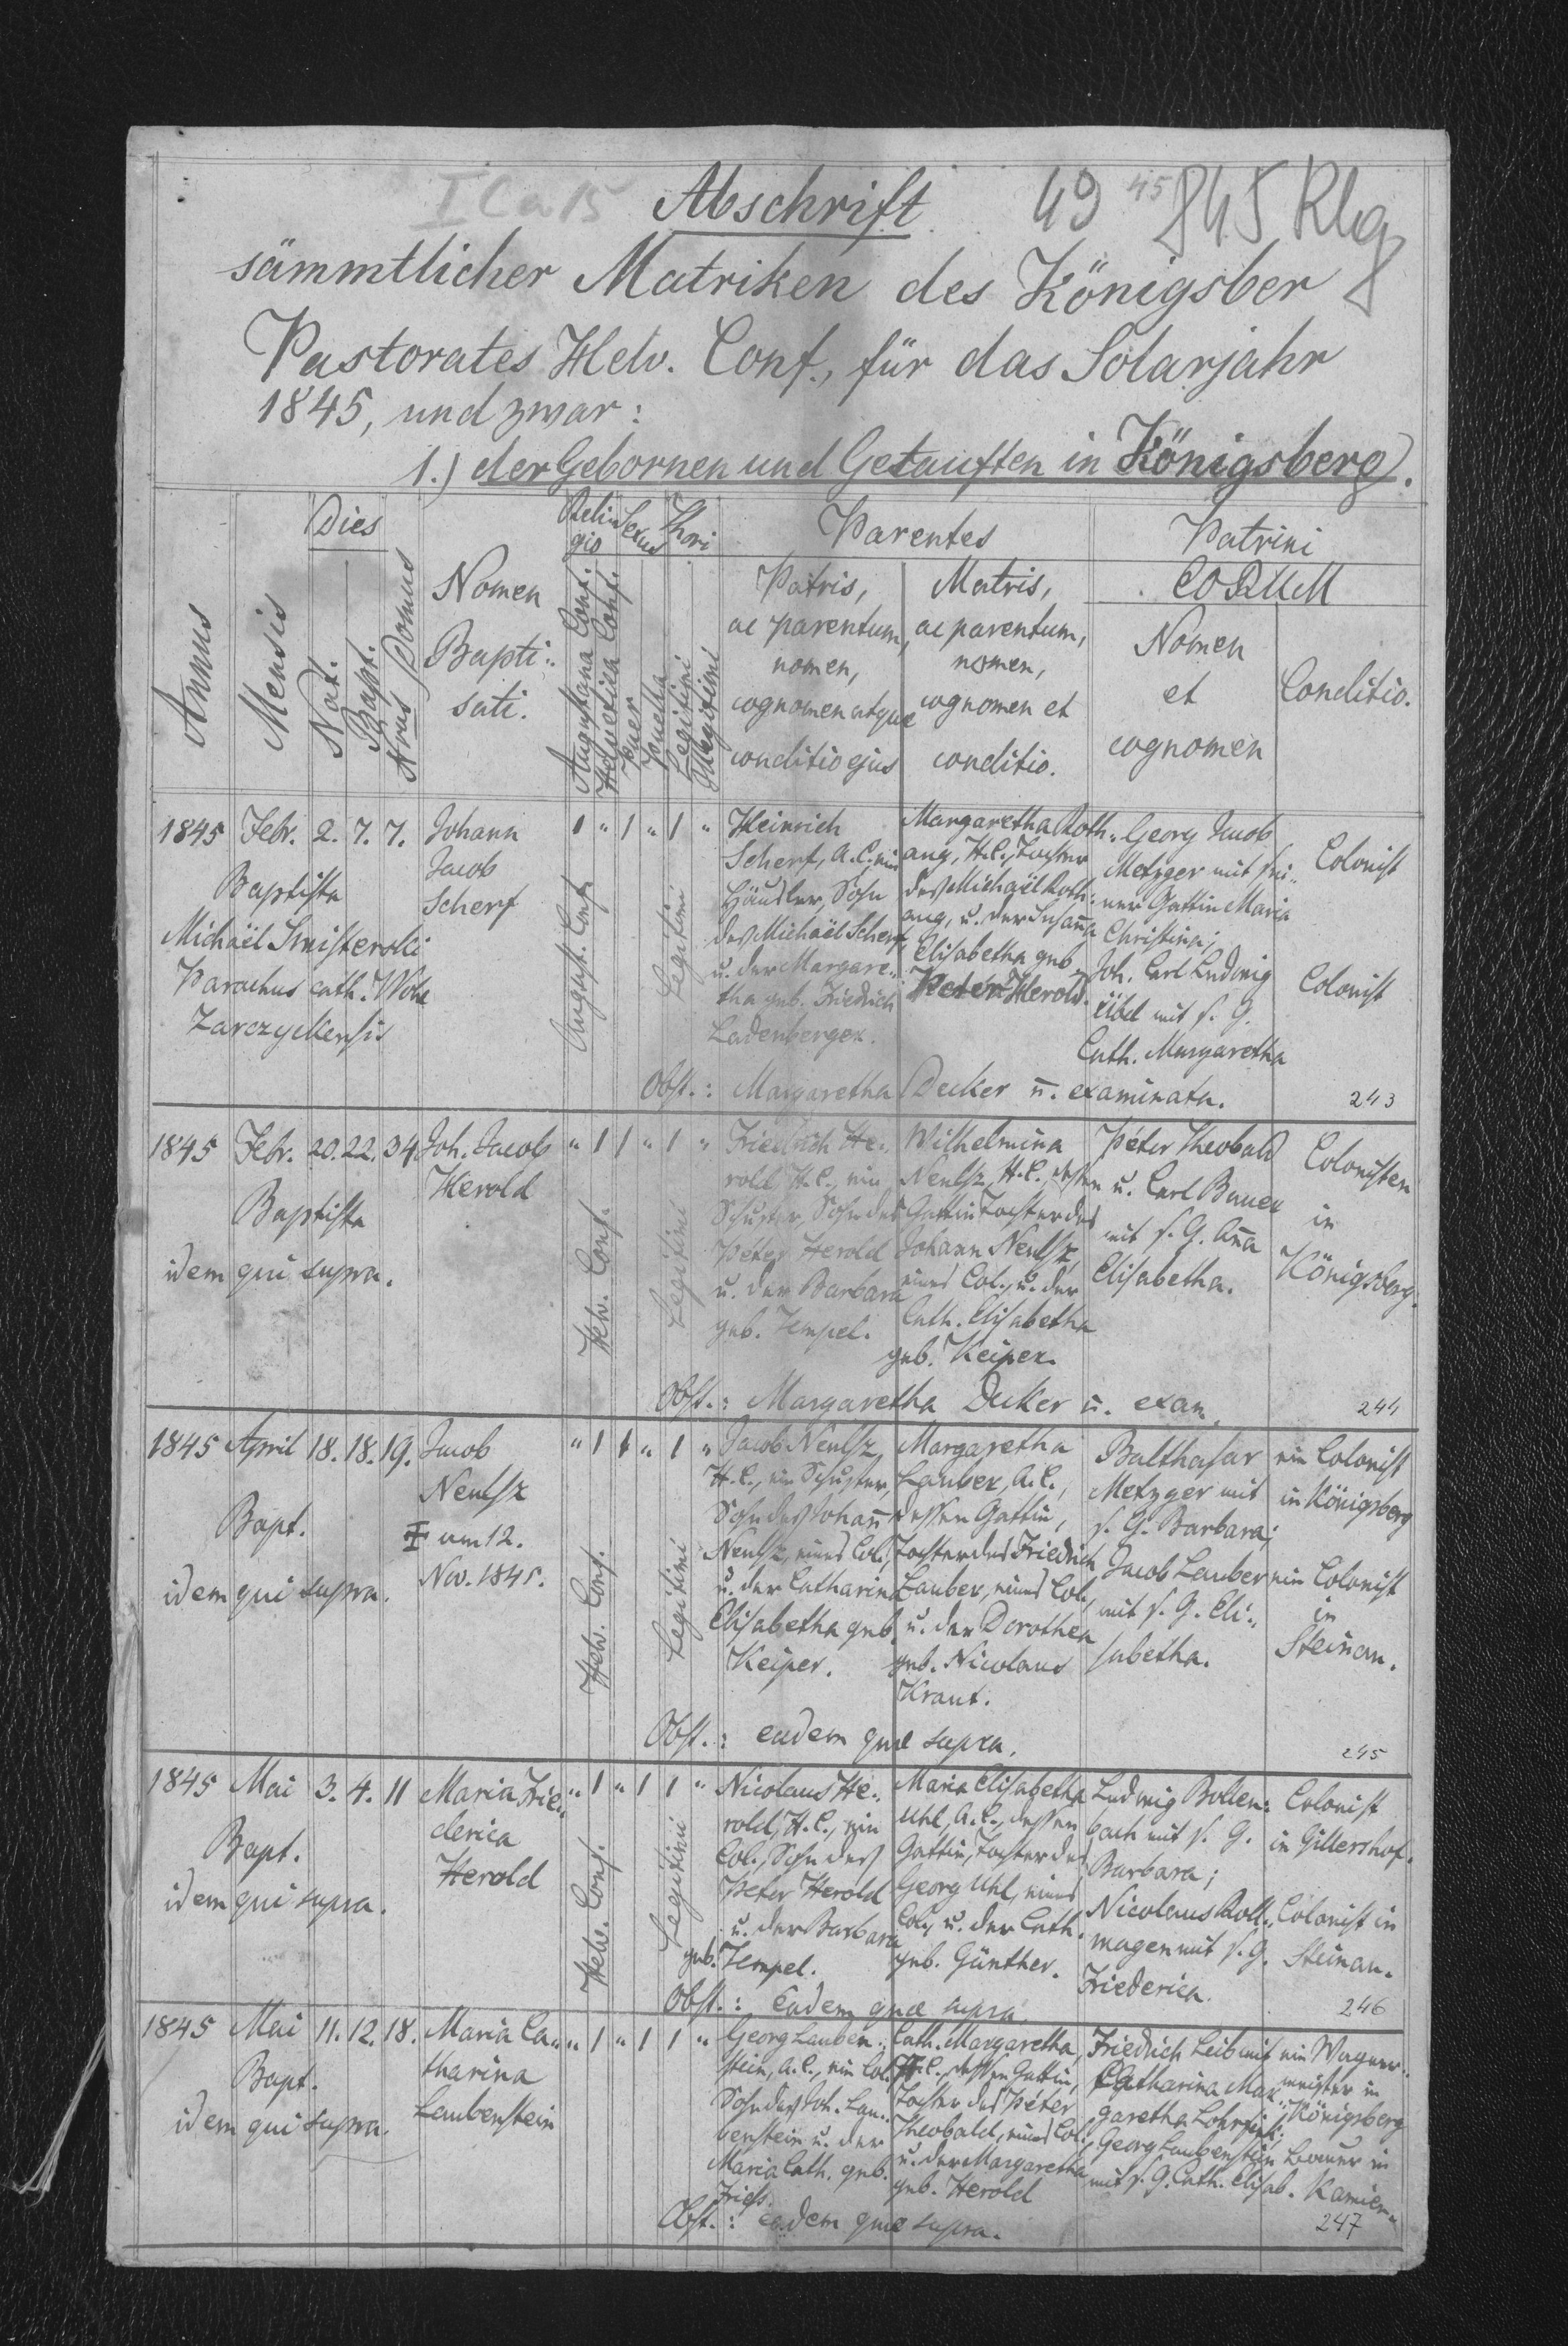 I C a 15 Abschrift 49 45 845 Kbg
sämmtlicher Matriken des Königsber
Pastorates Helv. Conf., für das Solarjahr
1845, und zwar:
1.) der Gebornen und Getauften in Königsberg.
Annus
Mensis
Dies
Nat.
Bapt.
Nrus Domus
Nomen
Bapti-
sati.
Reli-
gio
Augustana Conf.
Helvetica Conf.
Sexus
Puer
Puella
Thori
Legitimi
Illegitimi
Parentes
Patris,
ac parentum,
nomen,
cognomen atque
conditio ejus
Matris,
ac parentum,
nomen,
cognomen et
conditio.
Patrini
EORUM
Nomen
et
cognomen
Conditio.
1845 Febr. 2. 7. 7.
Baptista
Michaël
Parochus cath. Wola
Zarczyckensis
Johann
Jacob
Scherf
1 " 1 " 1 "
August. Conf.
Legitimi
Heinrich
Scherf, A.C., ein
Häusler, Sohn
des Michaël Scherf,
u. der Margare-
tha geb. Friedrich
Ladenberger.
Margaretha Roth-
aug, H.C., Tochter
des Michaël Roth-
aug, u. der Susanna
Elisabetha geb.
Peter Herold.
Georg Jacob
Metzger mit sei-
ner Gattin Maria
Christina;
Joh. Carl Ludwig
mit s. G.
Cath. Margaretha
Colonist
Colonist
Obst.: Margaretha Decker n. examinata.
243
1845 Febr. 20. 22. 34
Baptista
idem qui supra.
Joh. Jacob
Herold
" 1 1 " 1 "
Helv. Conf.
Legitimi
Friedrich He-
rold H.C., ein
Schuster, Sohn des
Peter Herold
u. der Barbara
geb. Tempel.
Wilhelmina
Neutz, H.C., dessen
Gattin Tochter des
Johann Neutz,
eines Col., u. der
Cath. Elisabetha
geb. Keiper.
Peter Theobald
u. Carl Bauer
mit s. G. Anna
Elisabetha.
Colonisten
in
Königsberg.
Obst.: Margaretha Decker n. exam.
244
1845 April 18. 18. 19.
Bapt.
idem qui supra.
Jacob
Neutz
am 12.
Nov. 1845.
" 1 1 " 1 "
Helv. Conf.
Legitimi
Jacob Neutz,
H.C., ein Schuster,
Sohn des Johann
Neutz, eines Col.,
u. der Catharina
Elisabetha geb.
Keiper.
Margaretha
Lauber, A.C.,
dessen Gattin,
Tochter des Friedrich
Lauber, eines Col.,
u. der Dorothea
geb. Nicolaus
Kraut.
Balthasar
Metzger mit
s. G. Barbara;
Jacob Lauber
mit s. G. Eli-
sabetha.
ein Colonist
in Königsberg
ein Colonist
in
Steinau.
Obst.: eadem quæ supra.
245
1845 Mai 3. 4. 11
Bapt.
idem qui supra.
Maria Frie-
derica
Herold
" 1 " 1 1 "
Helv. Conf.
Legitimi
Nicolaus He-
rold, H.C., ein
Col., Sohn des
Peter Herold
u. der Barbara
geb. Tempel.
Maria Elisabetha
Uhl, A.C., dessen
Gattin, Tochter des
Georg Uhl, eines
Col., u. der Cath.
geb. Günther.
Ludwig Bollen-
bach mit s. G.
Barbara;
Nicolaus Roll-
wagen mit s. G.
Friederica.
Colonist
in Gillershof.
Colonist in
Steinau.
Obst.: Eadem quæ supra.
246
1845 Mai 11. 12. 18.
Bapt.
idem qui supra.
Maria Ca-
tharina
Laubenstein
" 1 " 1 1 "
Georg Lauben-
stein, A.C., ein Col.
Sohn des Joh. Lau-
benstein u. der
Maria Cath. geb.
Cath. Margaretha,
H.C., dessen Gattin,
Tochter des Peter
Theobald, eines Col.,
u. der Margaretha
geb. Herold
Friedrich Leib mit
Catharina Mar-
garetha
Georg Laubenstein
mit s. G. Cath. Elisab.
ein Wagner-
meister in
Königsberg
Bauer in
Kamien-
Obst.: eadem quæ supra.
247